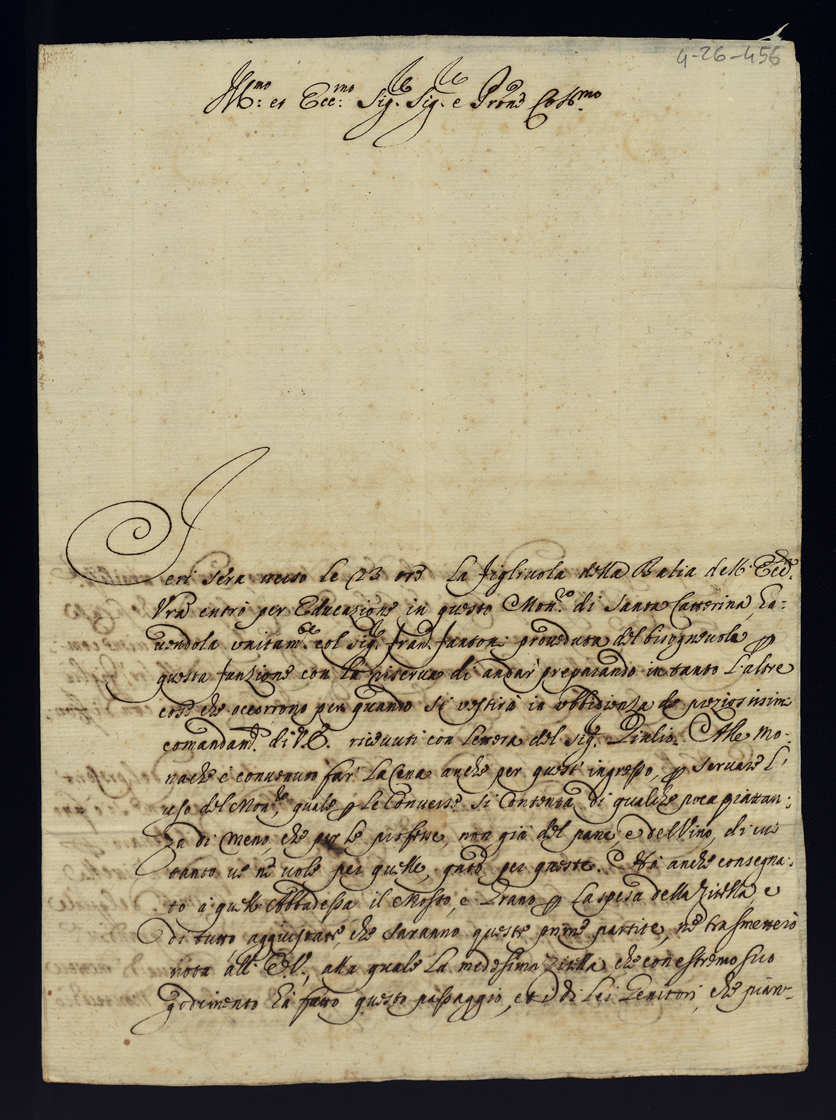 4-26-456
Ill.mo: et Ecc.mo: Sig. Sig. e Pron. Col.mo
Ieri sera verso le 23 ore la figliuola della Balia dell'Ecc.
Vra entrò per Educazione in questo Mon.ro di Santa Catterina, ha-
vendola unitam.te col Sig. Fran. proveduta del bisognevole p
questa funzione con la riserva di andar preparando in tanto l'altre
cose che occorrono per quando si vestirà in obbidienza de preziosissimi
comandam. di V.E. ricevuti con lettera del Sig. Giulio. Alle Mo-
nache è convenuto far la Cena anche per quest'ingresso, p servare l'
uso del Mon., quale p le Converse si contenta di qualche poca piatan-
za di meno, che per le professe, non già del pane, e del vino, di cui
tanto ve ne vole per quelle, quanto per queste. Hà anche consegna-
to a quell'Abbadessa il Mosto, e Grano p la spesa della Zitella e
di tutto aggiustate, che saranno queste prime partite, ne trasmetterò
nota all'E.V., alla quale la medesima Zitella che con estremo suo
godimento hà fatto questo passaggio, et i di lei Genitori, che